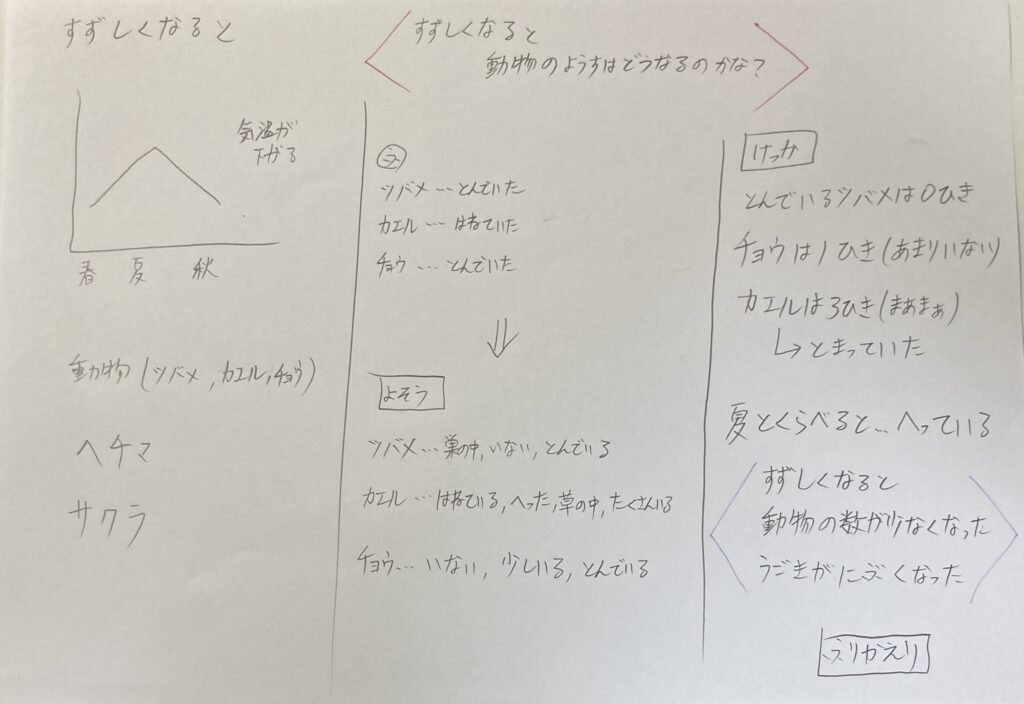 すずしくなると
気温が
下がる
春 夏 秋
動物(ツバメ,カエル,チョウ)
ヘチマ
サクラ
すずしくなると
動物のようすはどうなるのかな?
ツバメ…とんでいた
カエル…はねていた
チョウ…とんでいた
よそう
ツバメ…巣の中,いない,とんでいる
カエル…はねている,へった,草の中,たくさんいる
チョウ…いない,少しいる,とんでいる
けっか
とんでいるツバメは0ひき
チョウは1ぴき(あまりいない)
カエルは3びき(まあまぁ)
とまっていた
夏とくらべると…へっている
すずしくなると
動物の数が少なくなった
うごきがにぶくなった
ふりかえり